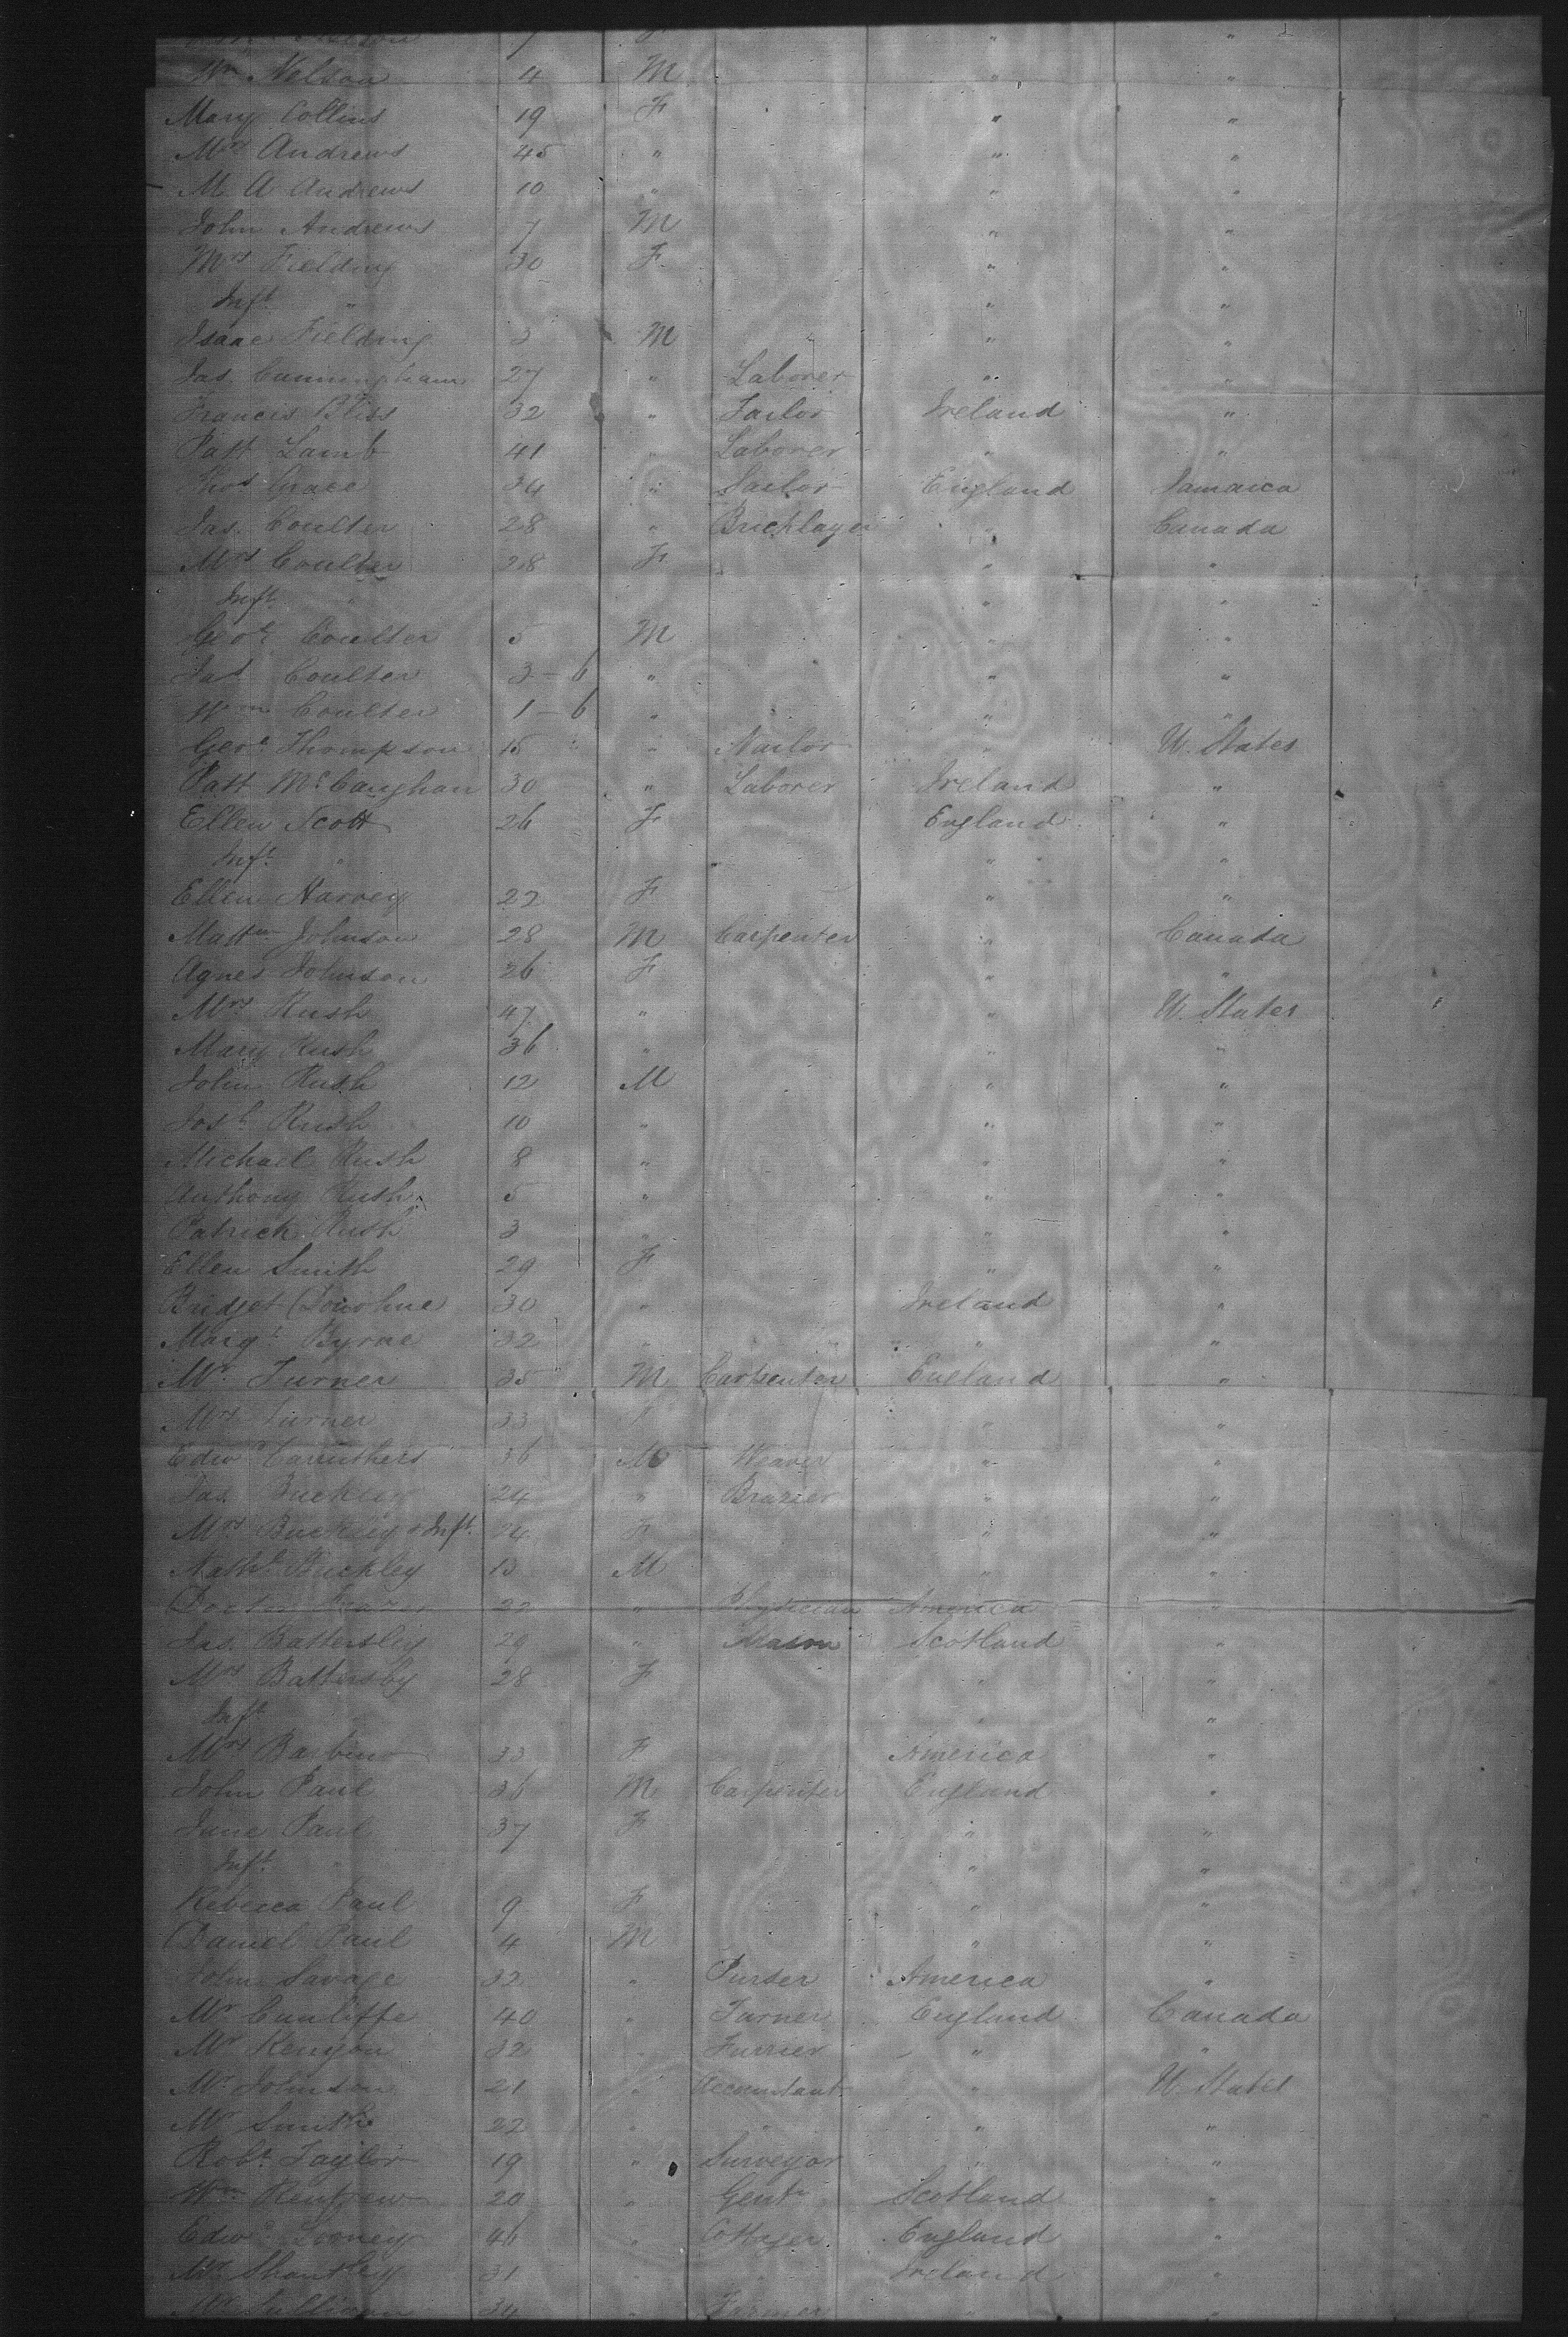 Wm Nelson 4 M " "
Mary Collins 19 F " "
Mrs Andrews 45 " " "
M A Andrews 10 " " "
John Andrews 7 M " "
Mrs Fielding 30 F " "
Inft " " "
Isaac Fielding 3 M " "
Jas Cunningham 27 " Laborer " "
Francis Bliss 32 " Tailor Ireland "
Patt Lamb 41 " Laborer " "
Thos Grace 34 " Sailor England Jamaica
Jas. Coulter 28 " Bricklayer " Canada
Mrs Coulter 28 F " "
Inft " " "
Geoe Coulter 5 M " "
Jas Coulter 3-6 " " "
Wm Coulter 1-6 " " "
Geoe Thompson 15 " Nailor " U. States
Patt McCaughan 30 " Laborer Ireland "
Ellen Scott 26 F England "
Inft " " "
Ellen Harvey 22 F " "
Johnson 28 M Carpenter " Canada
Agnes Johnson 26 F " "
Mrs Rush 47 " " U. States
Mary Rush 36 " " "
John Rush 12 M " "
Josh Rush 10 " " "
Michael Rush 8 " " "
Anthony Rush 5 " " "
Patrick Rush 3 " " "
Ellen Smith 29 F " "
Bridget Donohue 30 " Ireland "
Margt Byrne 32 " " "
Mr Turner 35 M Carpenter England "
Mrs Turner 33 F " "
Edwd Caruthers 36 M Weaver " "
Jas. Buckley 24 " Brazier " "
Mrs Buckley & Inft 24 F " "
Nathl Buckley 13 M " "
Doctor Frazer 22 " Physician America "
Jas. Battersby 29 " Mason Scotland "
Mrs Battersby 28 F " "
Inft " " "
Mrs 33 F America "
John Paul 36 M Carpenter England "
Jane Paul 37 F " "
Inft " " "
Rebecca Paul 9 F " "
Daniel Paul 4 M " "
John Savage 32 " Purser America "
Mr Cunliffe 40 " Turner England Canada
Mr Kenyon 32 " Furrier " "
Mr Johnson 21 " Accountant " U. States
Mr Smith 22 " " " "
Robt Taylor 19 " Surveyor " "
Wm Renfrew 20 " Gentn Scotland "
Edwd Looney 46 " Cottager England "
Mr 31 " Ireland "
Mr Sullivan 34 " Farmer " "